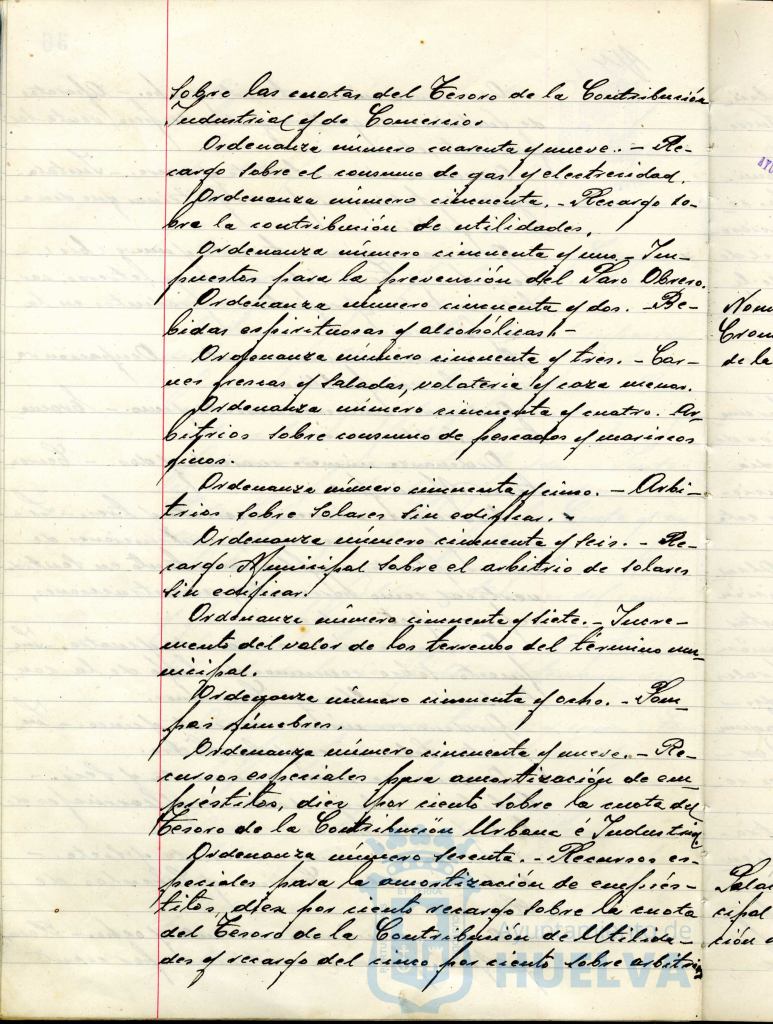 sobre las cuotas del Tesoro de la Contribución
Industrial y de Comercio.
Ordenanza número cuarenta y nueve. - Re-
cargo sobre el consumo de gas y electricidad.
Ordenanza número cincuenta. - Recargo so-
bre la contribución de utilidades.
Ordenanza número cincuenta y uno. - Im-
puestos para la prevención del Paro Obrero.
Ordenanza número cincuenta y dos. - Be-
bidas espirituosas y alcohólicas. -
Ordenanza número cincuenta y tres. - Car-
nes frescas y saladas, volateria y caza menor.
Ordenanza número cincuenta y cuatro. Ar-
bitrios sobre consumo de pescados y mariscos
finos.
Ordenanza número cincuenta y cinco. - Arbi-
trios sobre solares sin edificar.
Ordenanza número cincuenta y seis. - Re-
cargo Municipal sobre el arbitrio de solares
sin edificar.
Ordenanza número cincuenta y siete. - Incre-
mento del valor de los terrenos del término mu-
nicipal.
Ordenanza número cincuenta y ocho. - Pom-
pas fúnebres.
Ordenanza número cincuenta y nueve. - Re-
cursos especiales para amortización de em-
préstitos, diez por ciento sobre la cuota del
Tesoro de la Contribución Urbana é Industrial
Ordenanza número sesenta. - Recursos es-
peciales para la amortización de emprés-
titos, diez por ciento recargo sobre la cuota
del Tesoro de la Contribución de Utilida-
des y recargo del cinco por ciento sobre arbitrios
Nom
de la
cipal
ción
Ayuntamiento de
HUELVA